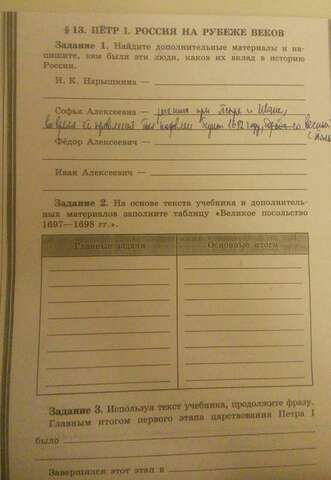 § 13. ПЁТР I. РОССИЯ НА РУБЕЖЕ ВЕКОВ
Задание 1. Найдите дополнительные материалы и на-
пишите, кем были эти люди, каков их вклад в историю
России.
Н. К. Нарышкина —
Софья Алексеевна — при Петре и Иване,
был подавлен бунт 1682 году, борьба со
Фёдор Алексеевич —
Иван Алексеевич —
Задание 2. На основе текста учебника и дополнитель-
ных материалов заполните таблицу «Великое посольство
1697—1698 гг.».
Главные задачи Основные итоги
Задание 3. Используя текст учебника, продолжите фразу.
Главным итогом первого этапа царствования Петра I
было
Завершился этот этап в